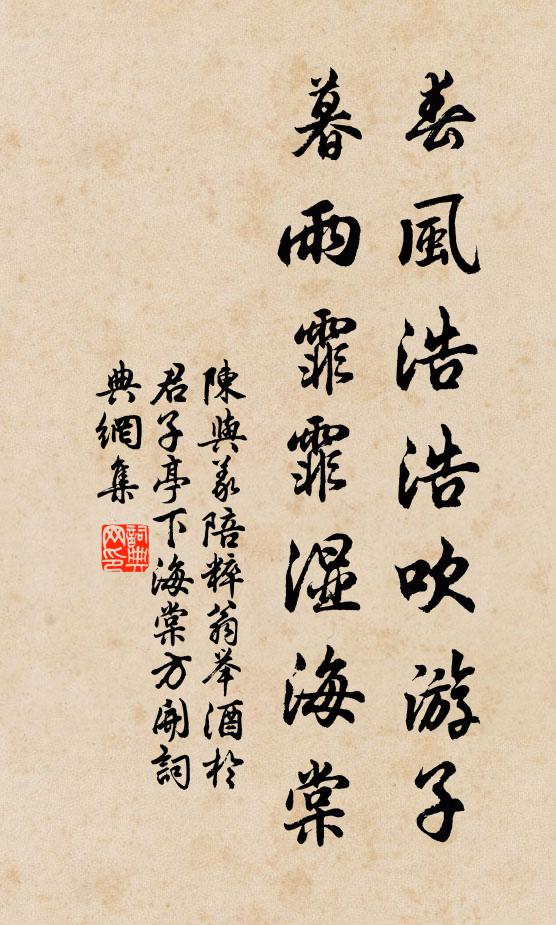 春風浩浩吹游子
暮雨霏霏湿海棠
陳與义陪粹翁举酒於
君子亭下海棠方開詞
典網集
詞典网印